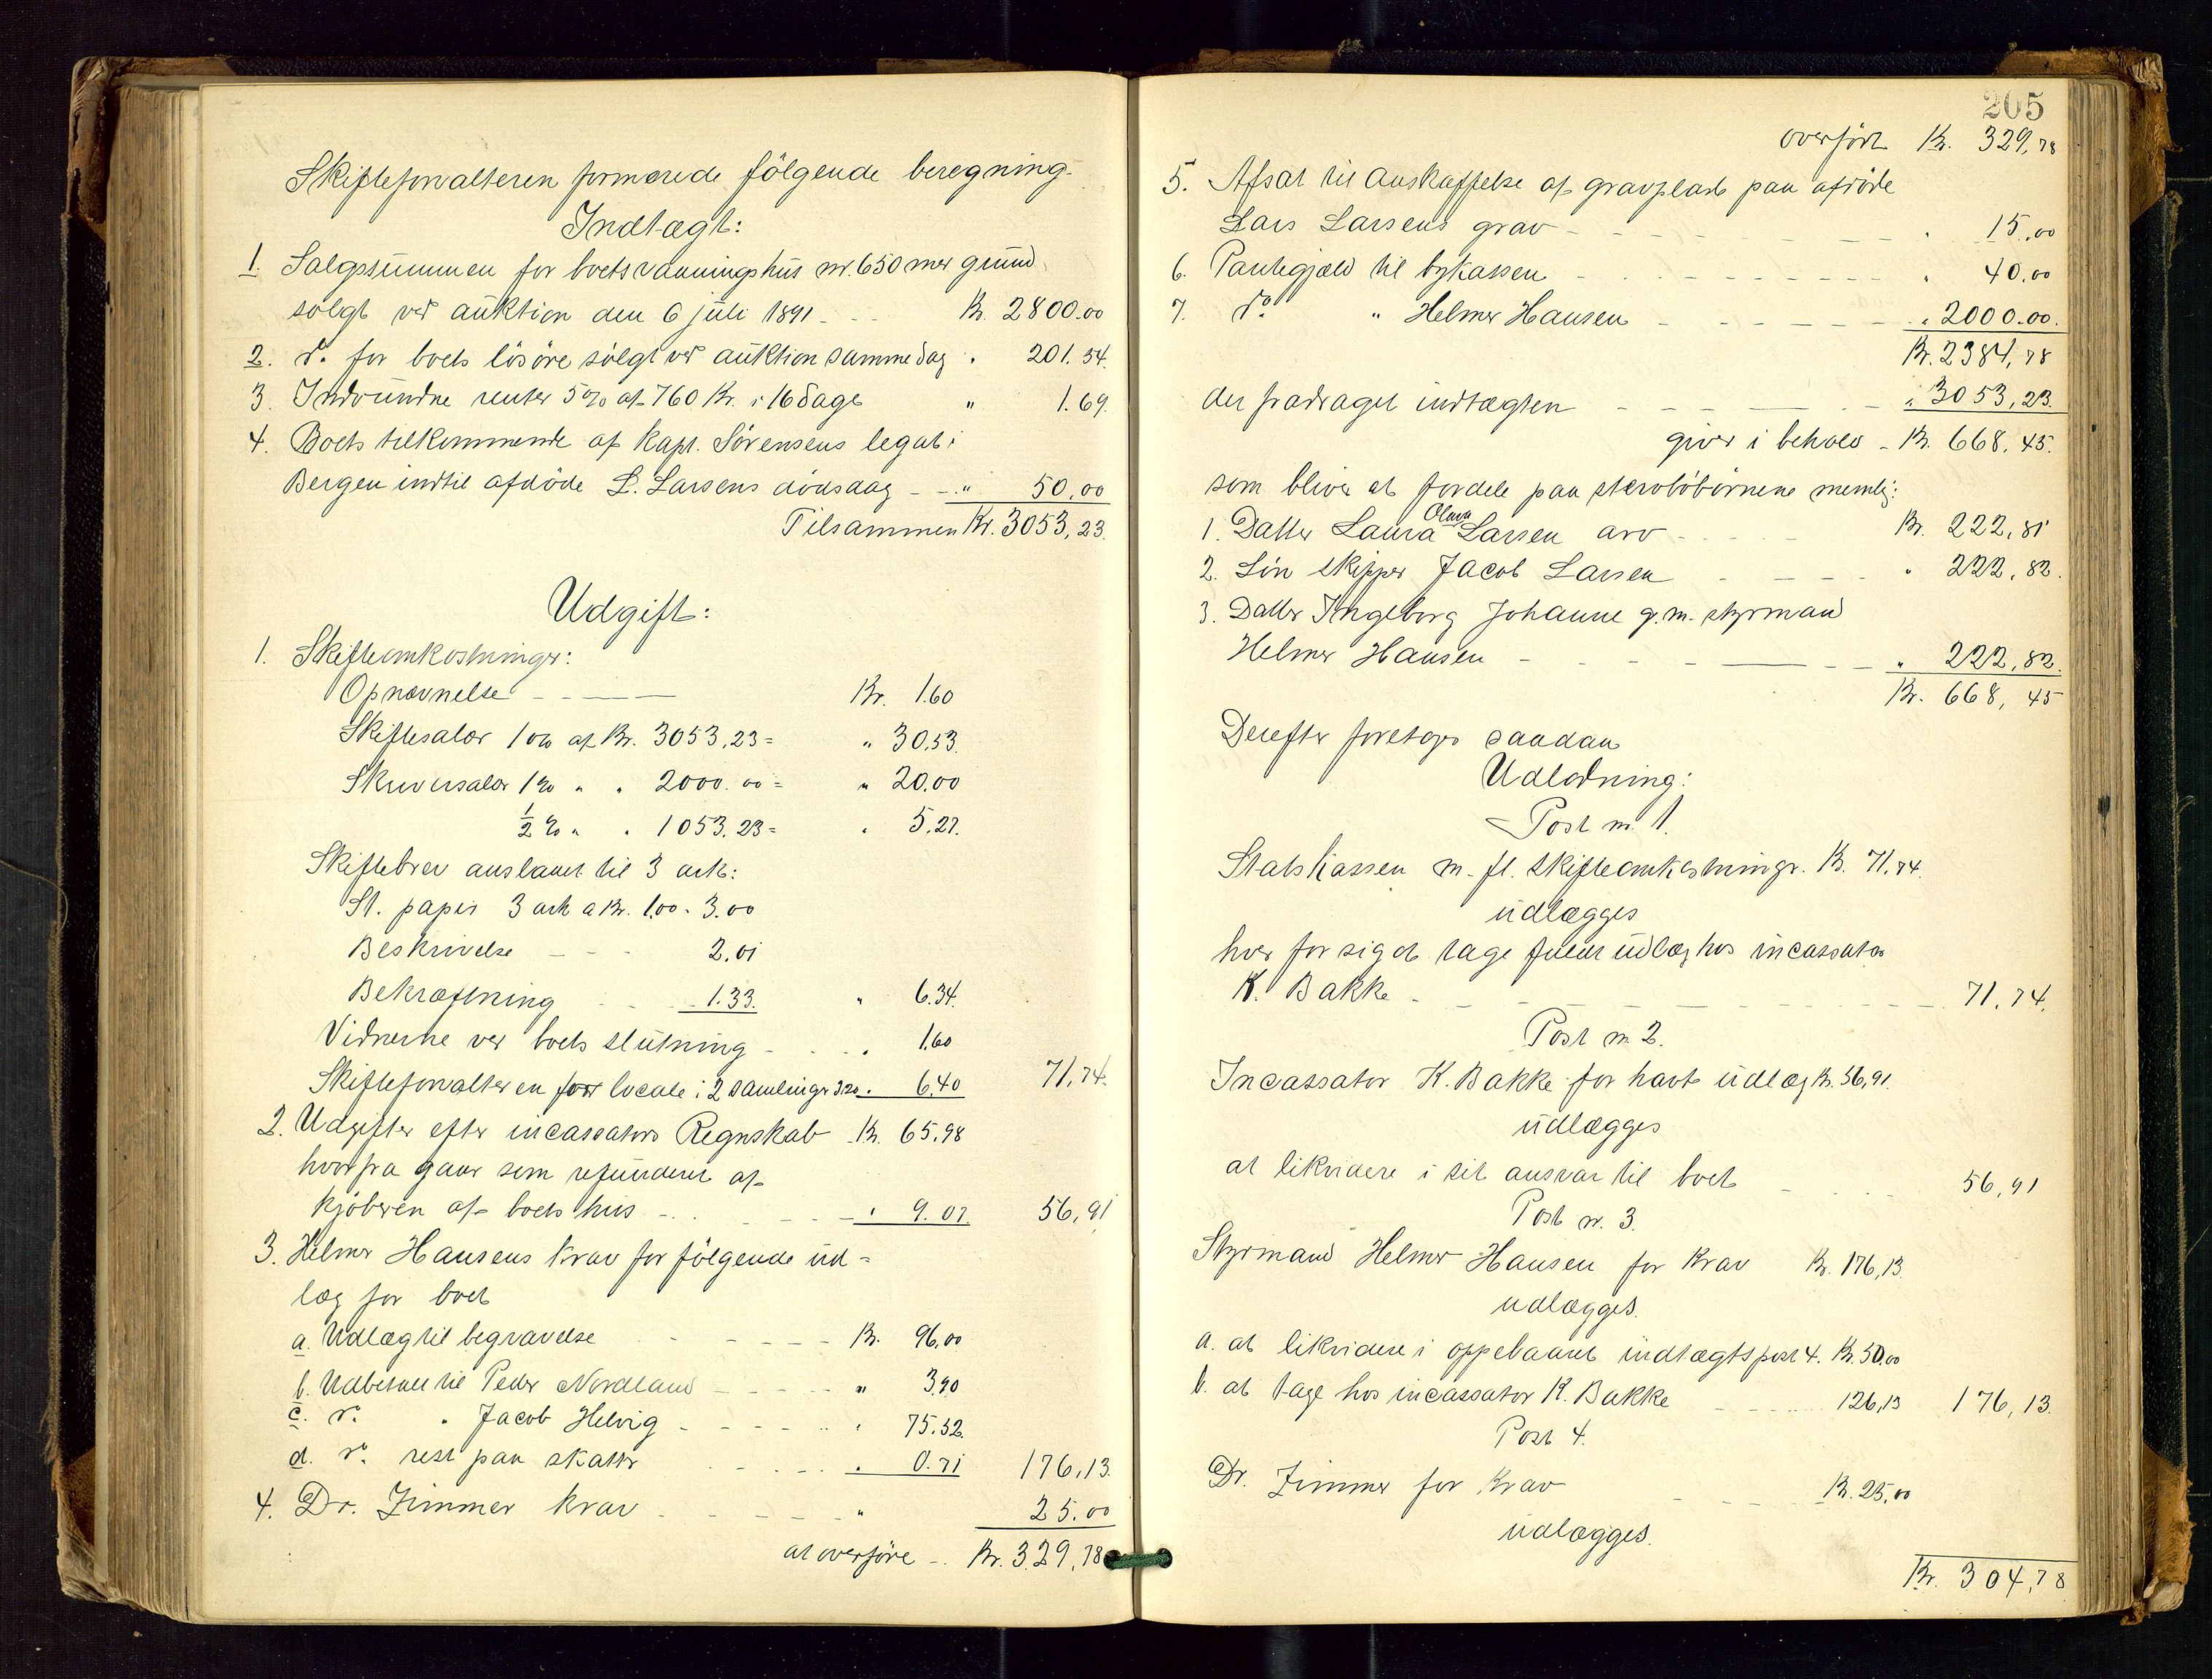 Skifteforvalteren formerede følgende beregning.
Indtægt:
1. Salgssummen for boets vaaningshus nr. 650 med grund
solgt ved auktion den 6 juli 1891 - - - Kr. 2800.00
2. do. for boets løsøre solgt ved auktion samme dag " 201.54.
3. Indvundne renter 5% af 760 Kr. i 16 dage " 1.69.
4. Boets tilkommende af Kapt. Sørensens legat i
Bergen indtil afdøde L. Larsens dødsdag - - " 50,00
Tilsammen Kr. 3053,23.
Udgift:
1. Skifteomkostninger:
Opnævnelse - - - Kr. 1.60
Skiftesalær 1% af Kr. 3053,23 = " 30,53.
Skriversalær 1% " " 2000.00 = " 20.00
½% " " 1053.23 = " 5.27.
Skiftebrev anslaaet til 3 ark:
St. papir 3 ark a Kr. 1.00 = 3.00
Beskrivelse - - - 2.01
Bekræftning - - - 1.33. " 6.34.
Vidnerne ved boets slutning - - - " 1.60
Skifteforvalteren for locale i 2 samlinger 3.20 " 6.40 71,74.
2. Udgifter efter incassators Regnskab Kr. 65,98
hvorfra gaar som refunderet af
kjøberen af boets hus - - - " 9.07. 56,91
3. Helmer Hansens krav for følgende ud-
læg for boet
a. Udlæg til begravelse - - - Kr. 96,00
b. Udbetalt til Peder Nordland - - - " 3,90
c. do. " Jacob Helvig - - - " 75.52.
d. do. rest paa skatter - - - " 0.71 176,13.
4. Dr. Zimmer krav - - - " 25.00
at overføre - Kr. 329,78
205
overført Kr. 329,78
5. Afsat til Anskaffelse af gravplads paa afdøde
Lars Larsens grav - - - " 15,00
6. Pantegjæld til bykassen - - - " 40,00
7. do. " Helmer Hansen - - - " 2000.00.
Kr. 2384,78
der fradraget indtægten - - - " 3053,23.
giver i behold - Kr. 668,45.
som bliver at fordele paa sterbobørnene nemlig:
1. Datter Laura Olava Larsen arv - - - Kr. 222,81
2. Søn skipper Jacob Larsen - - - " 222,82.
3. Datter Ingeborg Johanne g.m. styrmand
Helmer Hansen - - - " 222,82.
Kr. 668,45
Derefter foretoges saadan
Udlodning:
Post nr. 1.
Statskassen m. fl. skifteomkostninger. Kr. 71.74.
udlægges
hver for sig at tage fuldt udlæg hos incassator
K. Bakke - - - 71,74.
Post nr. 2.
Incassator K. Bakke for havt udlæg Kr. 56,91.
udlægges
at likvidere i sit ansvar til boet - - - 56,91
Post nr. 3.
Styrmand Helmer Hansen for krav Kr. 176,13.
udlægges.
a. at likvidere i oppebaaret indtægtspost 4. Kr. 50,00
b. at tage hos incassator K. Bakke - - - 126,13 176,13.
Post 4.
Dr. Zimmer for krav - - - Kr. 25,00
udlægges.
Kr. 304,78